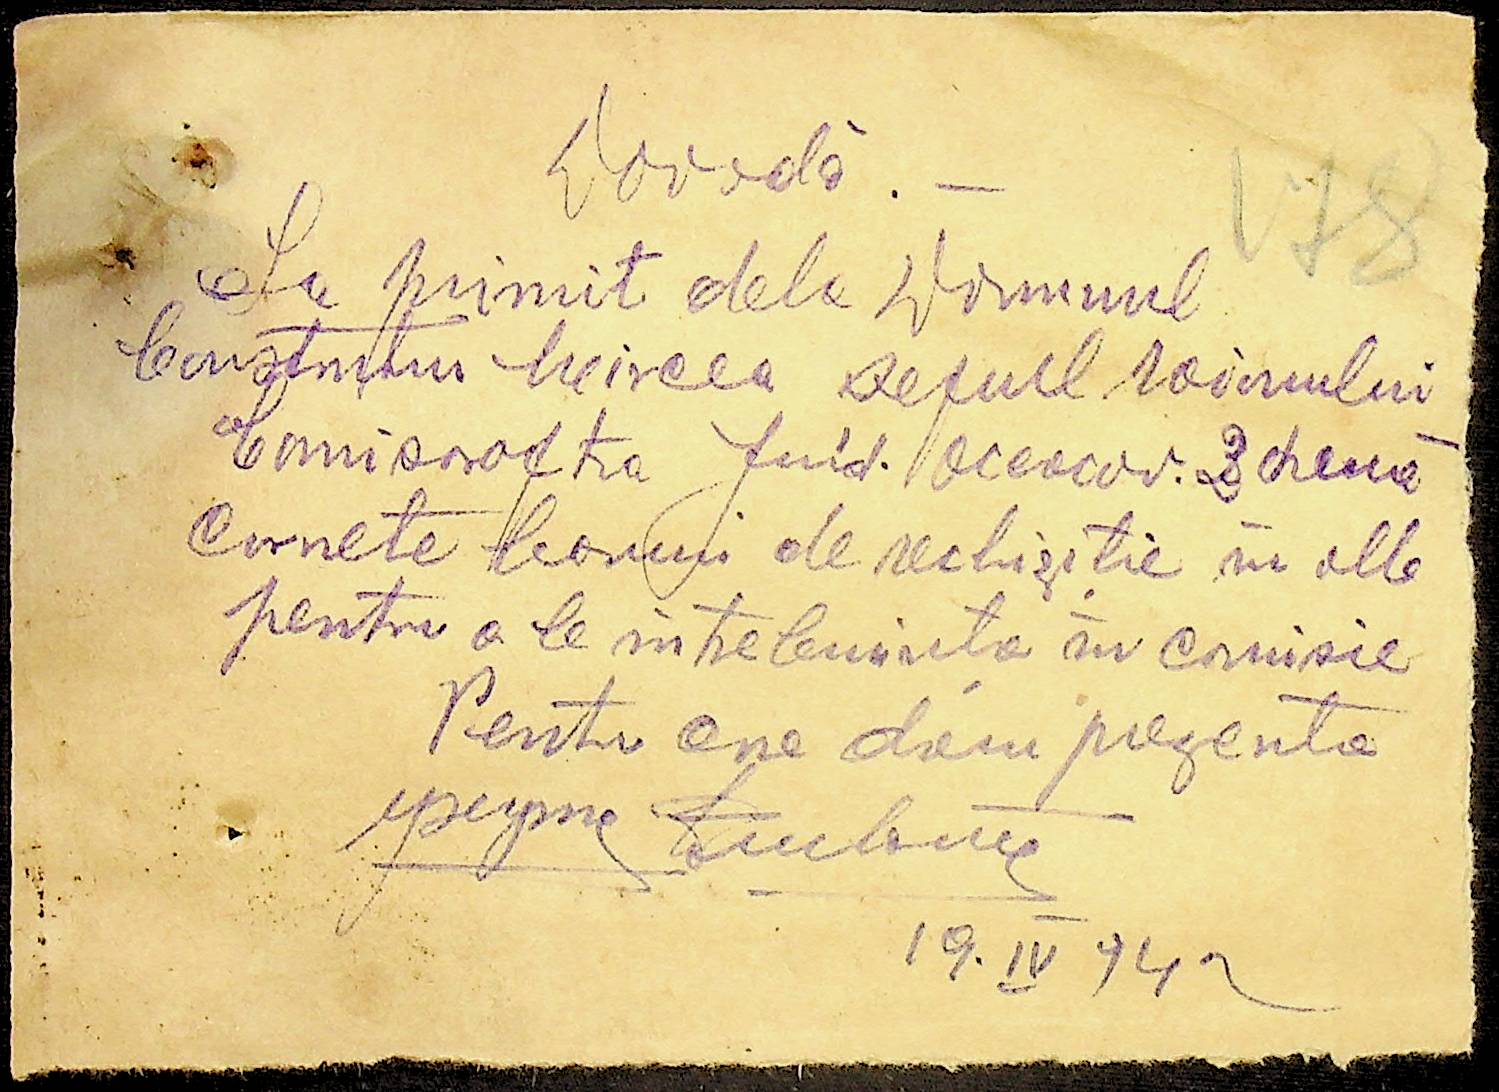 Dovadă. —
178
Sa primit dela Domnul
Constantin Mircea șeful raionului
jud. Oceacov.
cornete bonuri de rechiziție în alb
pentru a le intrebuința în comisie
Pentru care dăm prezenta
19. IV 942